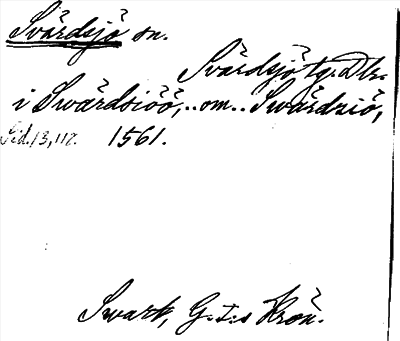 Svärdsjö sn.
Svärdsjö tg. Dlr.
i Swärdsiöö, .. om .. Swärdziö,
Sid. 13, 112. 1561.
Swart, G. I:s Krön.